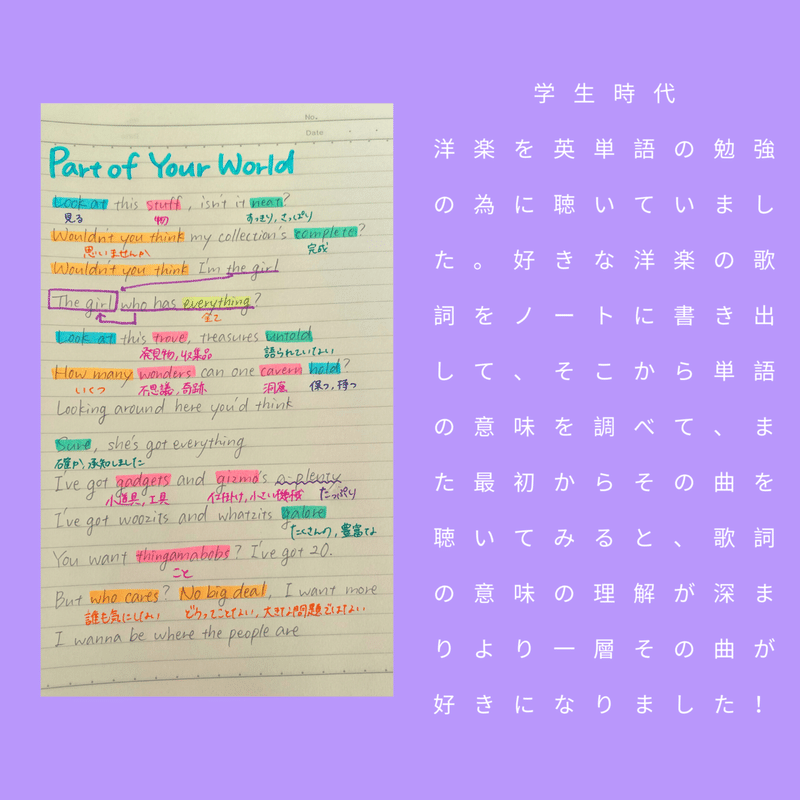 No.
Date
Part of Your World
Look at this stuff, isn't it neat?
見る 物 すっきり, さっぱり
Wouldn't you think my collection's complete?
思いませんか 完成
Wouldn't you think I'm the girl
The girl who has everything?
全て
Look at this trove, treasures untold
発見物, 収集品 語られていない
How many wonders can one cavern hold?
いくつ 不思議, 奇跡 洞窟 保つ, 持つ
Looking around here you'd think
Sure, she's got everything
確か, 承知しました
I've got gadgets and gizmo's a-plenty
小道具, 工具 仕掛け, 小さい機械 たっぷり
I've got woozits and whatzits galore
たくさんの, 豊富な
You want thingamabobs? I've got 20.
こと
But who cares? No big deal, I want more
誰も気にしない どうってことない, 大きな問題ではない
I wanna be where the people are
学生時代
洋楽を英単語の勉強
の為に聴いていまし
た。好きな洋楽の歌
詞をノートに書き出
して、そこから単語
の意味を調べて、ま
た最初からその曲を
聴いてみると、歌詞
の意味の理解が深ま
りより一層その曲が
好きになりました！